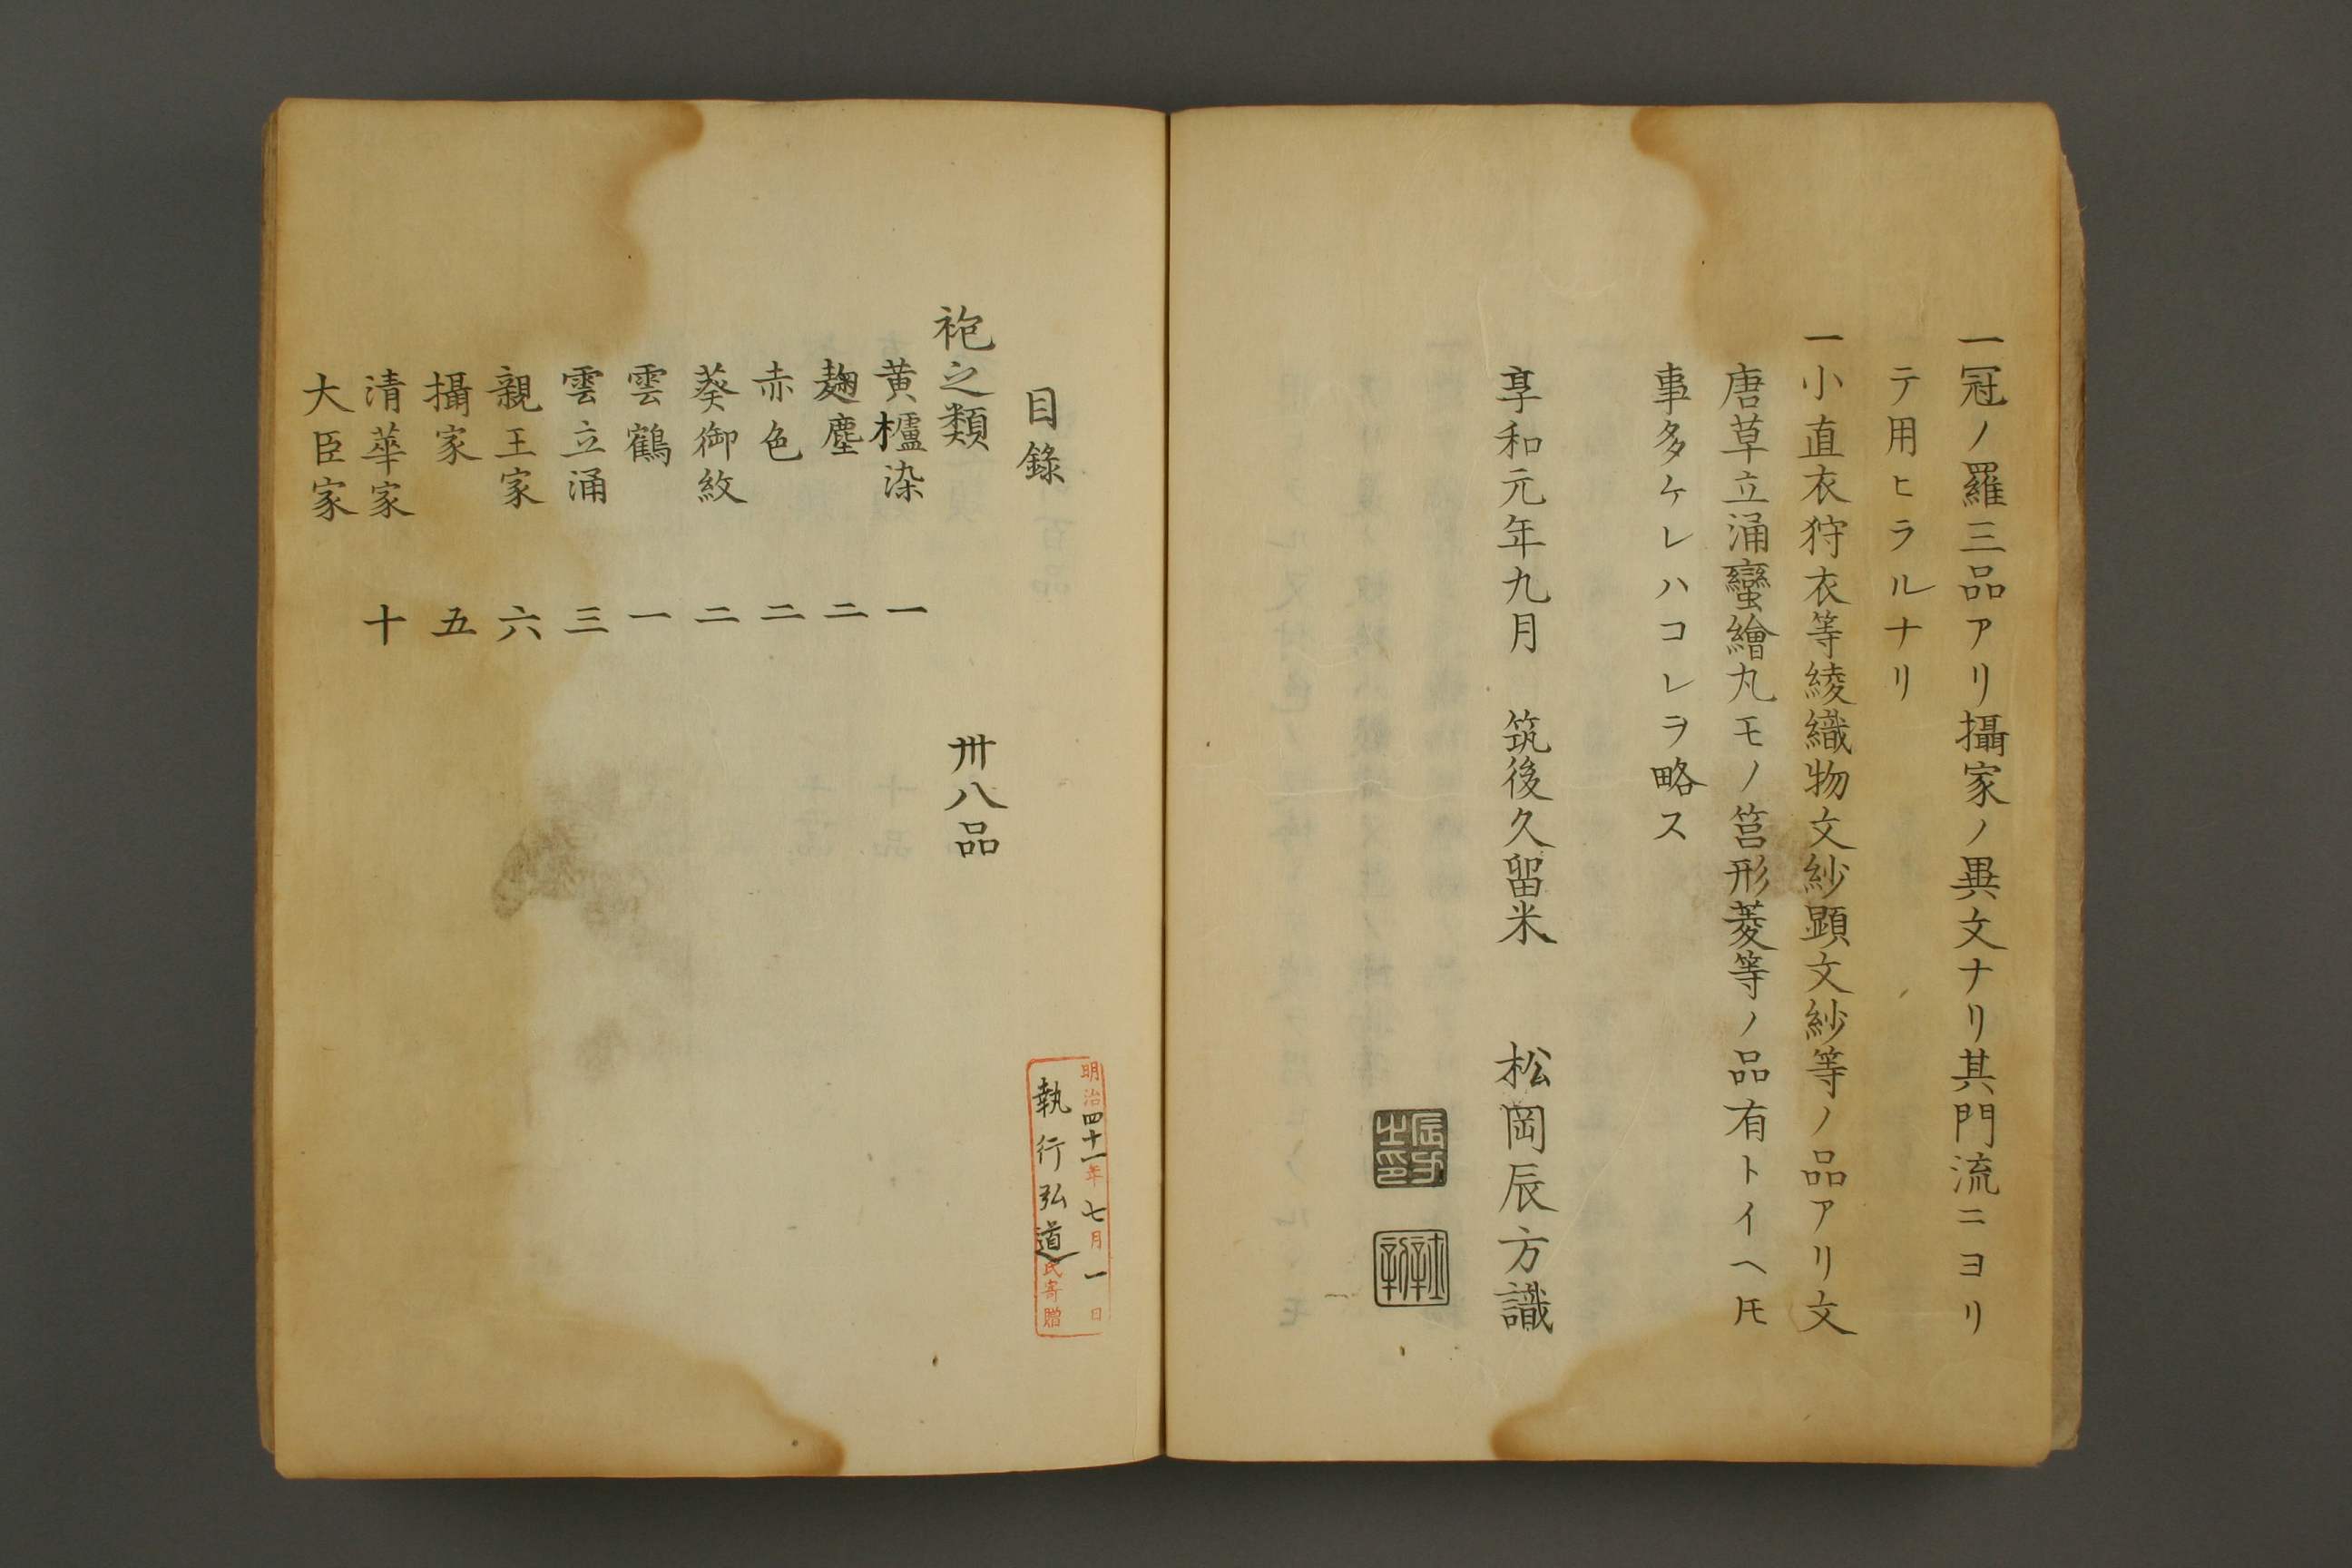 一冠ノ羅三品アリ攝家ノ異文ナリ其門流ニヨリ
テ用ヒラルナリ
一小直衣狩衣等綾織物文紗顕文紗等ノ品アリ文
唐草立涌蠻繪丸モノ筥形菱等ノ品有トイヘ𪜈
事多ケレハコレヲ略ス
享和元年九月 筑後久留米 松岡辰方識
辰方之印
目錄
袍之類 卅八品
黄櫨染 一
麹塵 二
赤色 二
葵御紋 二
雲鶴 一
雲立涌 三
親王家 六
攝家 五
清華家 十
大臣家
明治四十一年七月一日
執行弘道氏寄贈